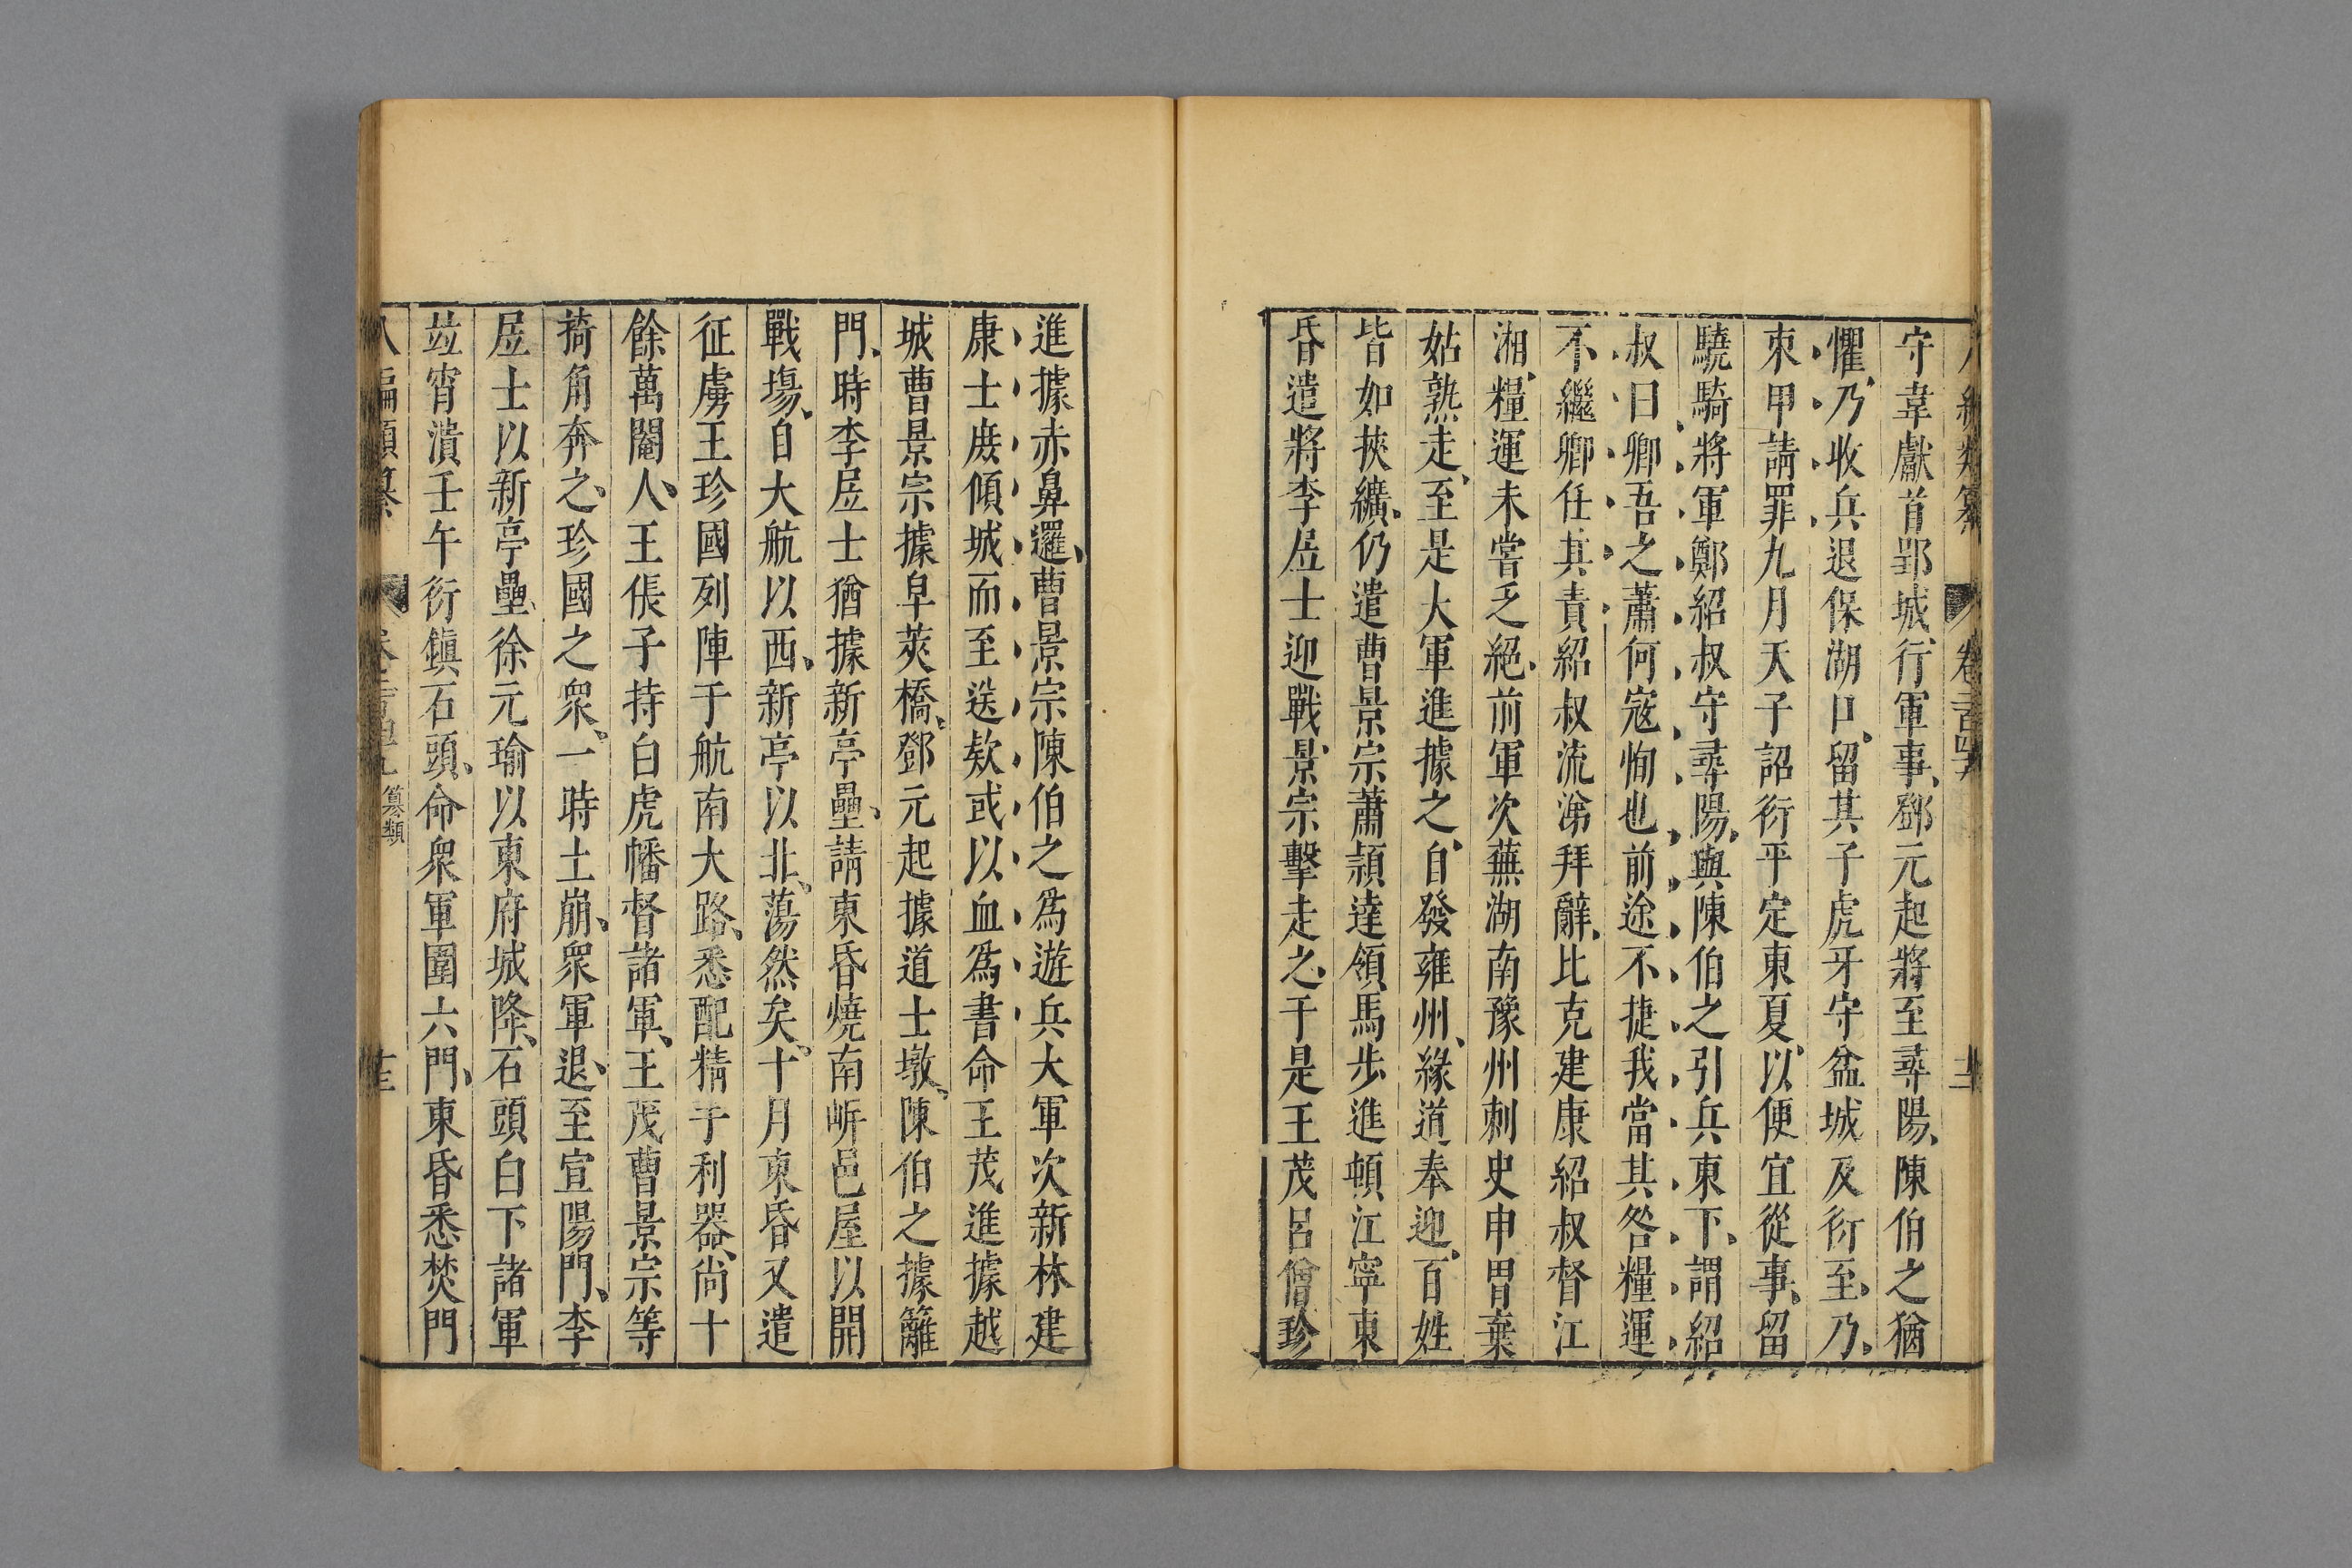 守韋獻首郢城行軍事鄧元起將至尋陽陳伯之猶
懼乃收兵退保湖口留其子虎牙守盆城及衍至乃
束甲請罪九月天子詔衍平定東夏以便宜從事留
驍騎將軍鄭紹叔守尋陽與陳伯之引兵東下謂紹
叔曰卿吾之蕭何寇恂也前途不捷我當其咎糧運
不繼卿任其責紹叔流涕拜辭比克建康紹叔督江
湘糧運未嘗乏絕前軍次蕪湖南豫州刺史申胄棄
姑熟走至是大軍進據之自發雍州緣道奉迎百姓
皆如挾纊仍遣曹景宗蕭頴達領馬步進頓江寧東
昏遣將李居士迎戰景宗擊走之于是王茂呂僧珍
進據赤鼻邏曹景宗陳伯之爲遊兵大軍次新林建
康士庶傾城而至送欵或以血爲書命王茂進據越
城曹景宗據皁莢橋鄧元起據道士墩陳伯之據籬
門時李居士猶據新亭壘請東昏燒南岍邑屋以開
戰塲自大航以西新亭以北蕩然矣十月東昏又遣
征虜王珍國列陣于航南大路悉配精手利器尚十
餘萬閹人王倀子持白虎幡督諸軍王茂曹景宗等
掎角奔之珍國之衆一時土崩衆軍退至宣陽門李
居士以新亭壘徐元瑜以東府城降石頭白下諸軍
竝宵潰壬午衍鎮石頭命衆軍圍六門東昏悉焚門
八編類纂 卷二百四十九 篡類 十三